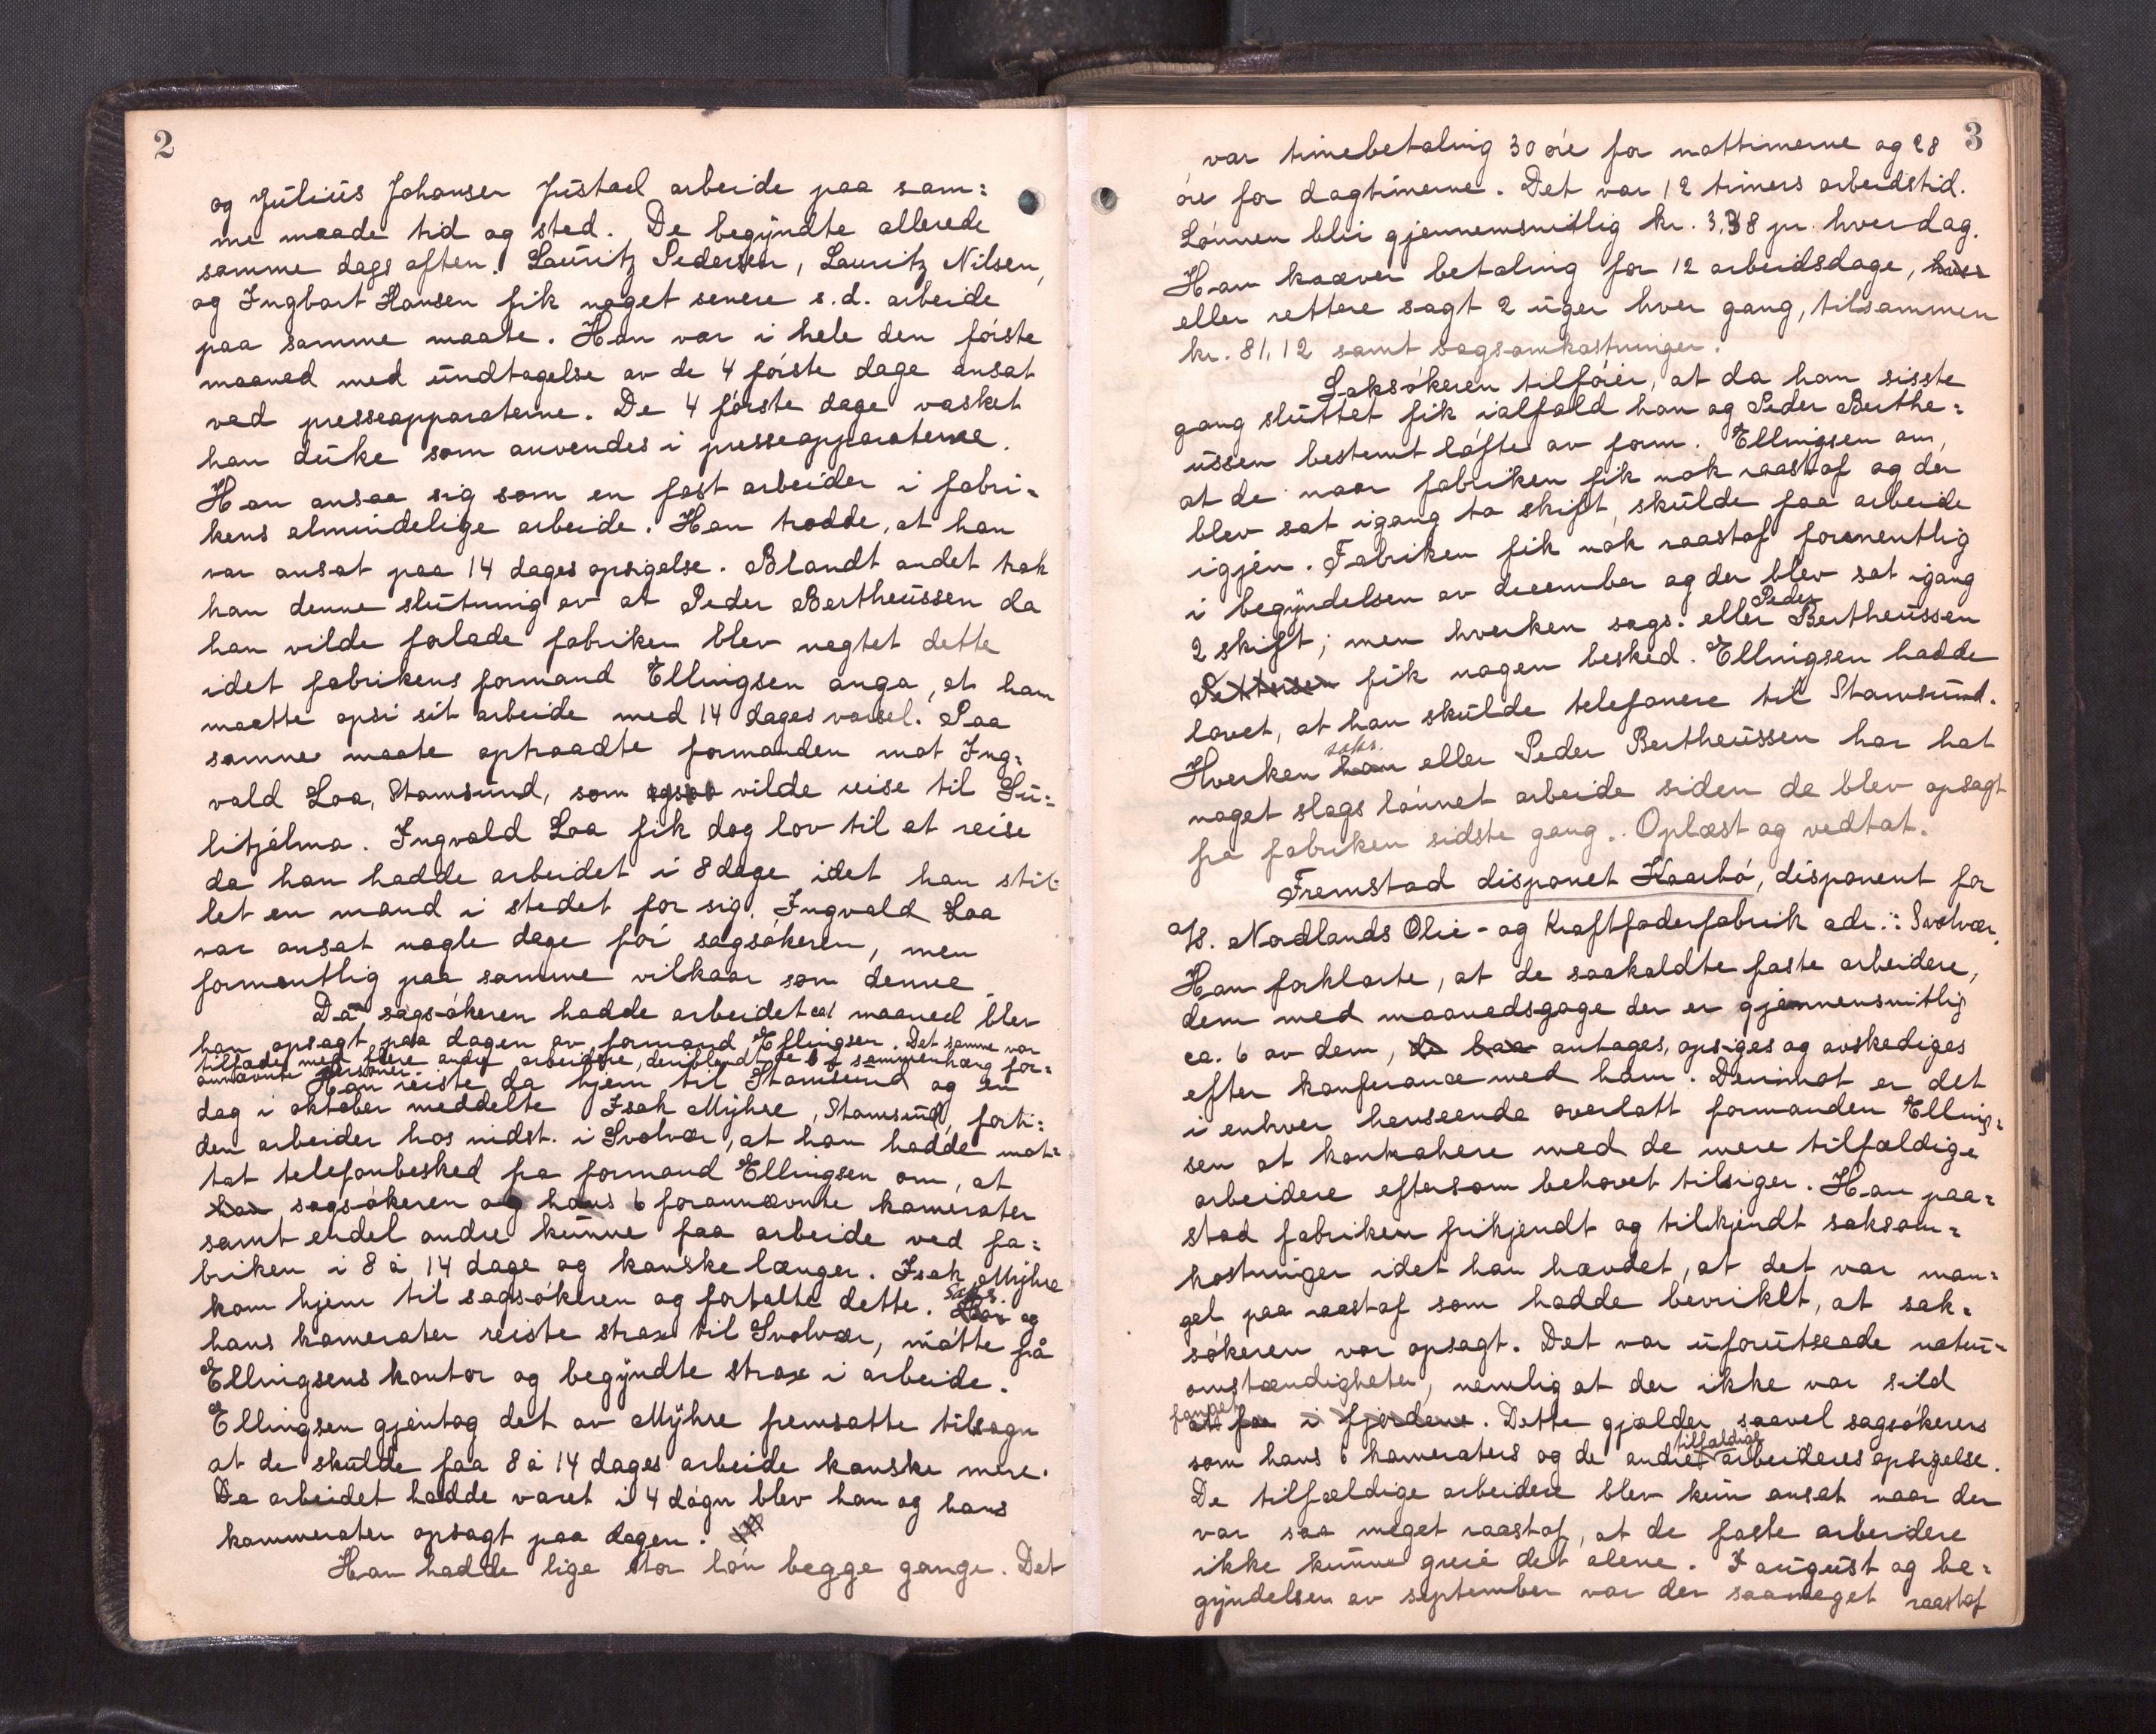 2
og Julius Johansen Justad arbeide paa sam=
me maade tid og sted. De begyndte allerede
samme dags aften. Lauritz Pedersen, Lauritz Nilsen,
og Ingbart Hansen fik noget senere s.d. arbeide
paa samme maate. Han var i hele den første
maaned med undtagelse av de 4 første dage ansat
ved presseapparaterne. De 4 første dage vasket
han duke som anvendes i presseapparaterne.
Han ansaa sig som en fast arbeider i fabri=
kens almindelige arbeide. Han trodde, at han
var ansat paa 14 dages opsigelse. Blandt andet trak
han denne slutning av at Peder Bertheussen da
han vilde forlade fabriken blev negtet dette
idet fabrikens formand Ellingsen anga, at han
maatte opsi sit arbeide med 14 dages varsel. Paa
samme maate optraadte formanden mot Ing=
vald Loa, Stamsund, som ogsaa vilde reise til Su=
litjelma. Ingvald Loa fik dog lov til at reise
da han hadde arbeidet i 8 dage idet han stil=
let en mand i stedet for sig. Ingvald Loa
var ansat nogle dage før sagsøkeren, men
formentlig paa samme vilkaar som denne.
Da sagsøkeren hadde arbeidet ca 1 maaned blev
han opsagt paa dagen av formand Ellingsen. Det samme var
tilfældet med flere andre arbeidere, deriblandt de 6 i sammenhæng for=
annævnte personer.
Han reiste da hjem til Stamsund og en
dag i oktober meddelte Isak Myhre, Stamsund, forti=
den arbeider hos indst. i Svolvær, at han hadde mot=
tat telefonbesked fra formand Ellingsen om, at
han sagsøkeren og hans 6 forannævnte kamerater
samt endel andre kunne faa arbeide ved fa=
briken i 8 à 14 dage og kanske længer. Isak Myhre
kom hjem til sagsøkeren og fortalte dette. Saks.
Han og
hans kamerater reiste strax til Svolvær, møtte på
Ellingsens kontor og begyndte strax i arbeide.
Ellingsen gjentog det av Myhre fremsatte tilsagn
at de skulde faa 8 à 14 dages arbeide kanske mere.
Da arbeidet hadde varet i 4 døgn blev han og hans
kammerater opsagt paa dagen.
Han hadde lige stor løn begge gange. Det
3
var timebetaling 30 øre for nattimerne og 28
øre for dagtimerne. Det var 12 timers arbeidstid.
Lønnen blir gjennemsnitlig kr. 3,38 pr. hverdag.
Han kræver betaling for 12 arbeidsdage, hver
eller rettere sagt 2 uger hver gang, tilsammen
kr. 81,12 samt sagsomkostninger.
Saksøkeren tilføier, at da han sisste
gang sluttet fik ialfald han og Peder Berthe=
ussen bestemt løfte av form. Ellingsen om,
at de naar fabriken fik nok raastof og der
blev sat igang to skift, skulde faa arbeide
igjen. Fabriken fik nok raastof formentlig
i begyndelsen av december og der blev sat igang
2 skift; men hverken sags. eller Peder Bertheussen
Pettersen fik nogen besked. Ellingsen hadde
lovet, at han skulde telefonere til Stamsund.
Hverken han saks. eller Peder Bertheussen har hat
noget slags lønnet arbeide siden de blev opsagt
fra fabriken sidste gang. Oplæst og vedtat.
Fremstod disponet Kaarbø, disponent for
A/S. Nordlands Olie- og Kraftfoderfabrik adr.: Svolvær.
Han forklarte, at de saakaldte faste arbeidere,
dem med maanedsgage der er gjennemsnitlig
ca. 6 av dem, de haa antages, opsiges og avskediges
efter konferance med ham. Derimot er det
i enhver henseende overlatt formanden Elling=
sen at kontrahere med de mere tilfældige
arbeidere eftersom behovet tilsiger. Han paa=
stod fabriken frikjendt og tilkjendt saksom=
kostninger idet han hævdet, at det var man=
gel paa raastof som hadde bevirket, at sak=
søkeren var opsagt. Det var uforutseede natur=
omstændigheter, nemlig at der ikke var sild
fanget
at faa i fjordene. Dette gjælder saavel sagsøkerens
som hans 6 kameraters og de andre tilfældige arbeideres opsigelse.
De tilfældige arbeidere blev kun ansat naar der
var saa meget raastof, at de faste arbeidere
ikke kunne greie det alene. I august og be=
gyndelsen av september var der saameget raastof